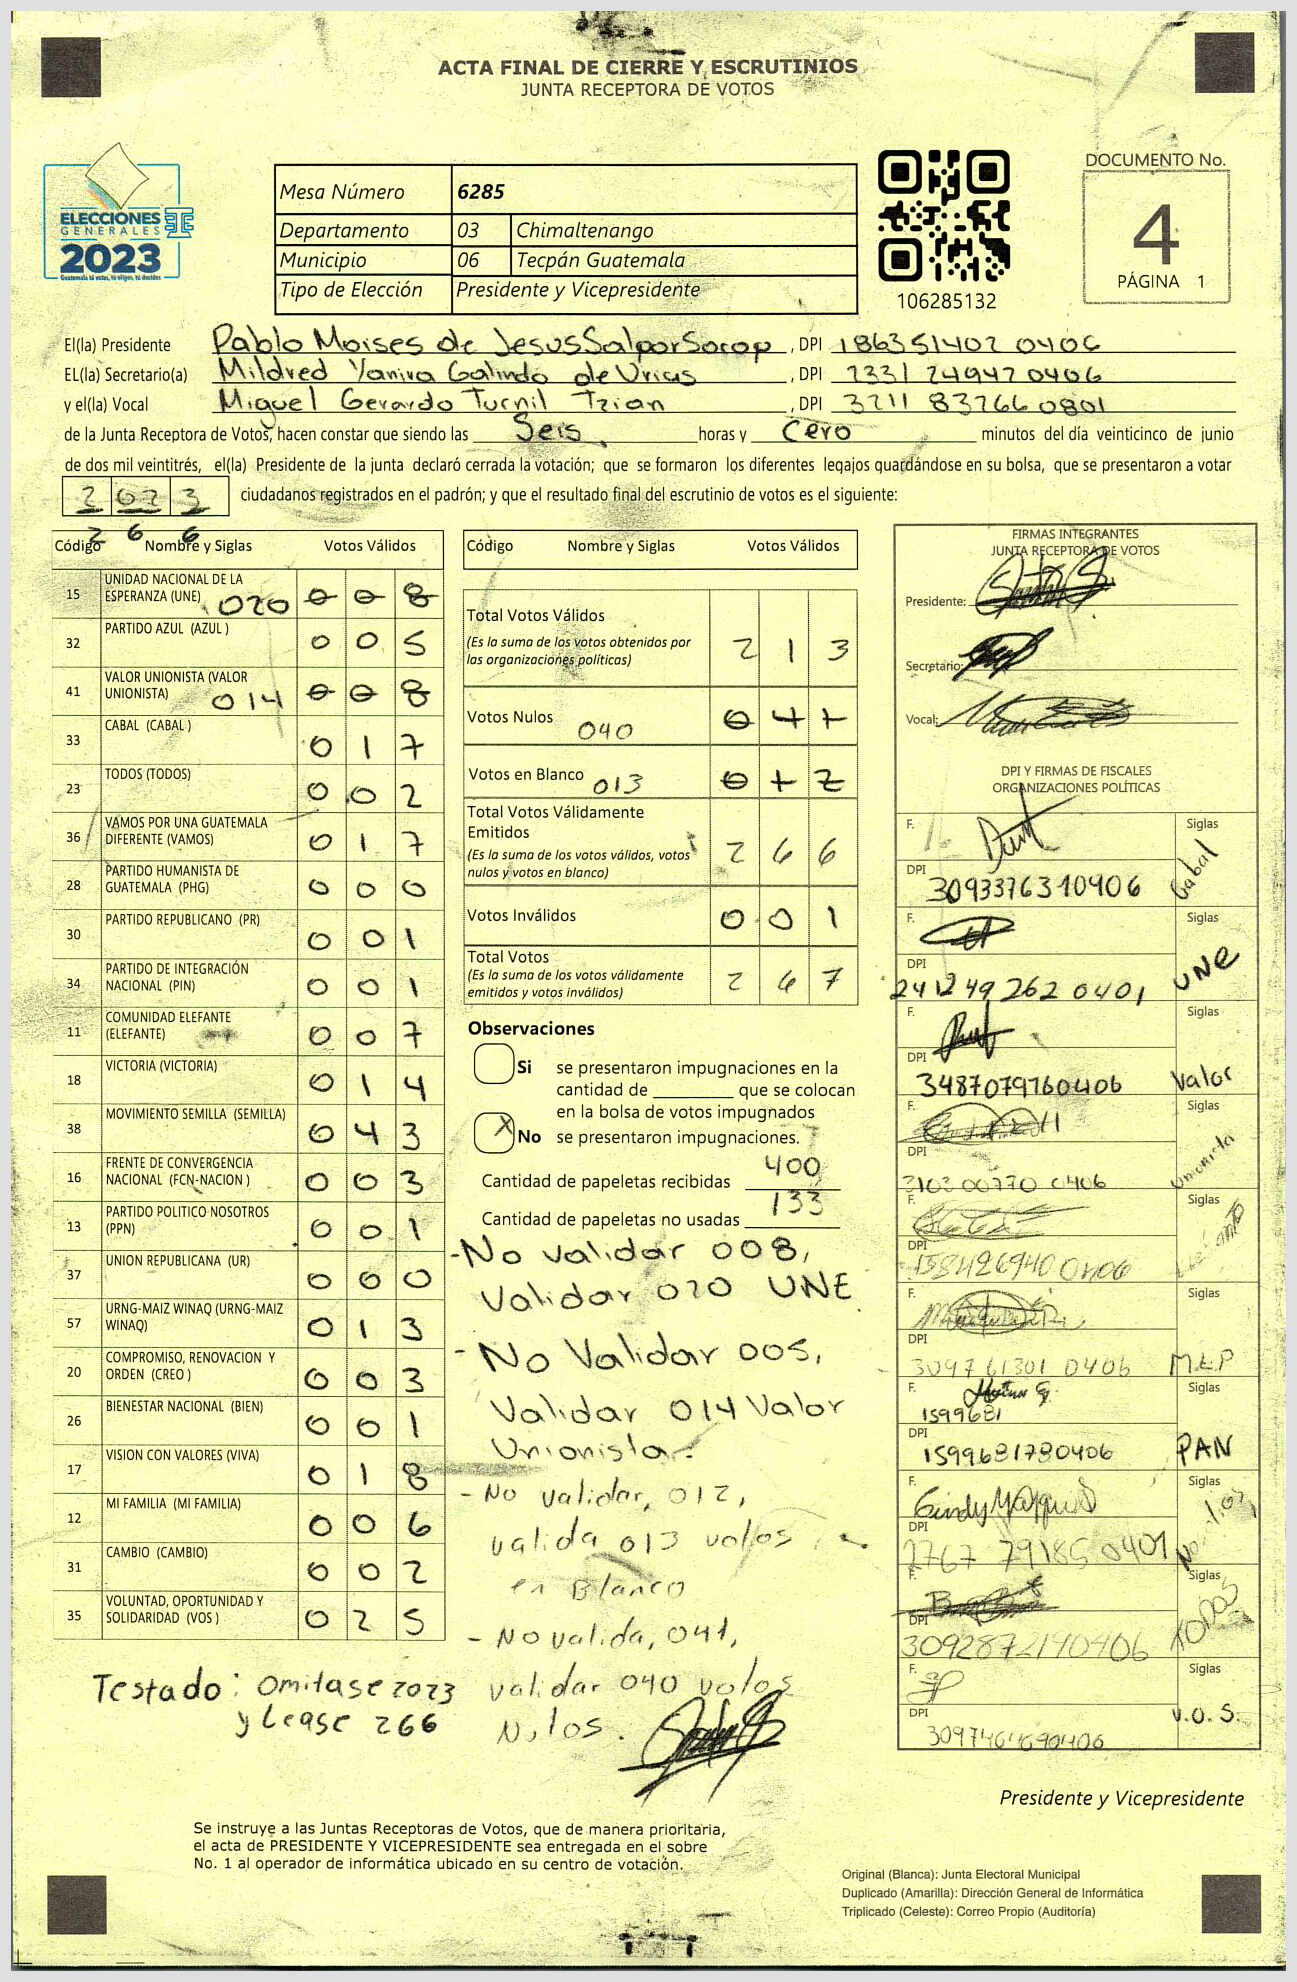 ACTA FINAL DE CIERRE Y ESCRUTINIOS
JUNTA RECEPTORA DE VOTOS
ELECCIONES
GENERALES
2023
Guatemala tú votas, tú eliges, tú decides
Mesa Número 6285
Departamento 03 Chimaltenango
Municipio 06 Tecpán Guatemala
Tipo de Elección Presidente y Vicepresidente
106285132
DOCUMENTO No.
4
PÁGINA 1
El(la) Presidente Pablo Moises de Jesus Salpor Socop, DPI 186351402 0406
EL(la) Secretario(a) Mildred Yanira Galindo de Urias, DPI 2331 24947 0406
y el(la) Vocal Miguel Gerardo Turnil Tzian, DPI 3211 83266 0801
de la Junta Receptora de Votos, hacen constar que siendo las Seis horas y Cero minutos del día veinticinco de junio
de dos mil veintitrés, el(la) Presidente de la junta declaró cerrada la votación; que se formaron los diferentes legajos guardándose en su bolsa, que se presentaron a votar
2 02 3 ciudadanos registrados en el padrón; y que el resultado final del escrutinio de votos es el siguiente:
2 6 6
Código Nombre y Siglas Votos Válidos
15 UNIDAD NACIONAL DE LA ESPERANZA (UNE) 020 0 0 8
32 PARTIDO AZUL (AZUL ) 0 0 5
41 VALOR UNIONISTA (VALOR UNIONISTA) 014 0 0 8
33 CABAL (CABAL ) 0 1 7
23 TODOS (TODOS) 0 0 2
36 VAMOS POR UNA GUATEMALA DIFERENTE (VAMOS) 0 1 7
28 PARTIDO HUMANISTA DE GUATEMALA (PHG) 0 0 0
30 PARTIDO REPUBLICANO (PR) 0 0 1
34 PARTIDO DE INTEGRACIÓN NACIONAL (PIN) 0 0 1
11 COMUNIDAD ELEFANTE (ELEFANTE) 0 0 7
18 VICTORIA (VICTORIA) 0 1 4
38 MOVIMIENTO SEMILLA (SEMILLA) 0 4 3
16 FRENTE DE CONVERGENCIA NACIONAL (FCN-NACION ) 0 0 3
13 PARTIDO POLITICO NOSOTROS (PPN) 0 0 1
37 UNION REPUBLICANA (UR) 0 0 0
57 URNG-MAIZ WINAQ (URNG-MAIZ WINAQ) 0 1 3
20 COMPROMISO, RENOVACION Y ORDEN (CREO ) 0 0 3
26 BIENESTAR NACIONAL (BIEN) 0 0 1
17 VISION CON VALORES (VIVA) 0 1 8
12 MI FAMILIA (MI FAMILIA) 0 0 6
31 CAMBIO (CAMBIO) 0 0 2
35 VOLUNTAD, OPORTUNIDAD Y SOLIDARIDAD (VOS ) 0 2 5
Testado: Omitase 2023
y Lease 266
Código Nombre y Siglas Votos Válidos
Total Votos Válidos 2 1 3
(Es la suma de los votos obtenidos por
las organizaciones políticas)
Votos Nulos 040 0 4 1
Votos en Blanco 013 0 1 2
Total Votos Válidamente
Emitidos 2 6 6
(Es la suma de los votos válidos, votos
nulos y votos en blanco)
Votos Inválidos 0 0 1
Total Votos 2 6 7
(Es la suma de los votos válidamente
emitidos y votos inválidos)
Observaciones
Si se presentaron impugnaciones en la
cantidad de ________ que se colocan
en la bolsa de votos impugnados
X No se presentaron impugnaciones.
Cantidad de papeletas recibidas 400
Cantidad de papeletas no usadas 133
-No validar 008,
Validar 020 UNE
-No Validar 005,
Validar 014 Valor
Unionista.
- No validar, 012,
valida 013 votos
en Blanco
- No valida, 041,
validar 040 votos
Nulos.
FIRMAS INTEGRANTES
JUNTA RECEPTORA DE VOTOS
Presidente:
Secretario:
Vocal:
DPI Y FIRMAS DE FISCALES
ORGANIZACIONES POLÍTICAS
F. Siglas
DPI 3093376310406 Cabal
F. Siglas
DPI 241249262 0401 UNE
F. Siglas
DPI 3487079760406 Valor
F. Siglas
DPI 3103 00770 0406 Unionista
F. Siglas
DPI 158426940 0406
F. Siglas
DPI 3097 61301 0406 M.L.P
F. Siglas
1599681
DPI 1599681780406 PAN
F. Siglas
DPI 2767 79185 0401
F. Siglas
DPI 3092872190406 TODOS
F. Siglas
DPI V.O.S.
Presidente y Vicepresidente
Se instruye a las Juntas Receptoras de Votos, que de manera prioritaria,
el acta de PRESIDENTE Y VICEPRESIDENTE sea entregada en el sobre
No. 1 al operador de informática ubicado en su centro de votación.
Original (Blanca): Junta Electoral Municipal
Duplicado (Amarilla): Dirección General de Informática
Triplicado (Celeste): Correo Propio (Auditoría)